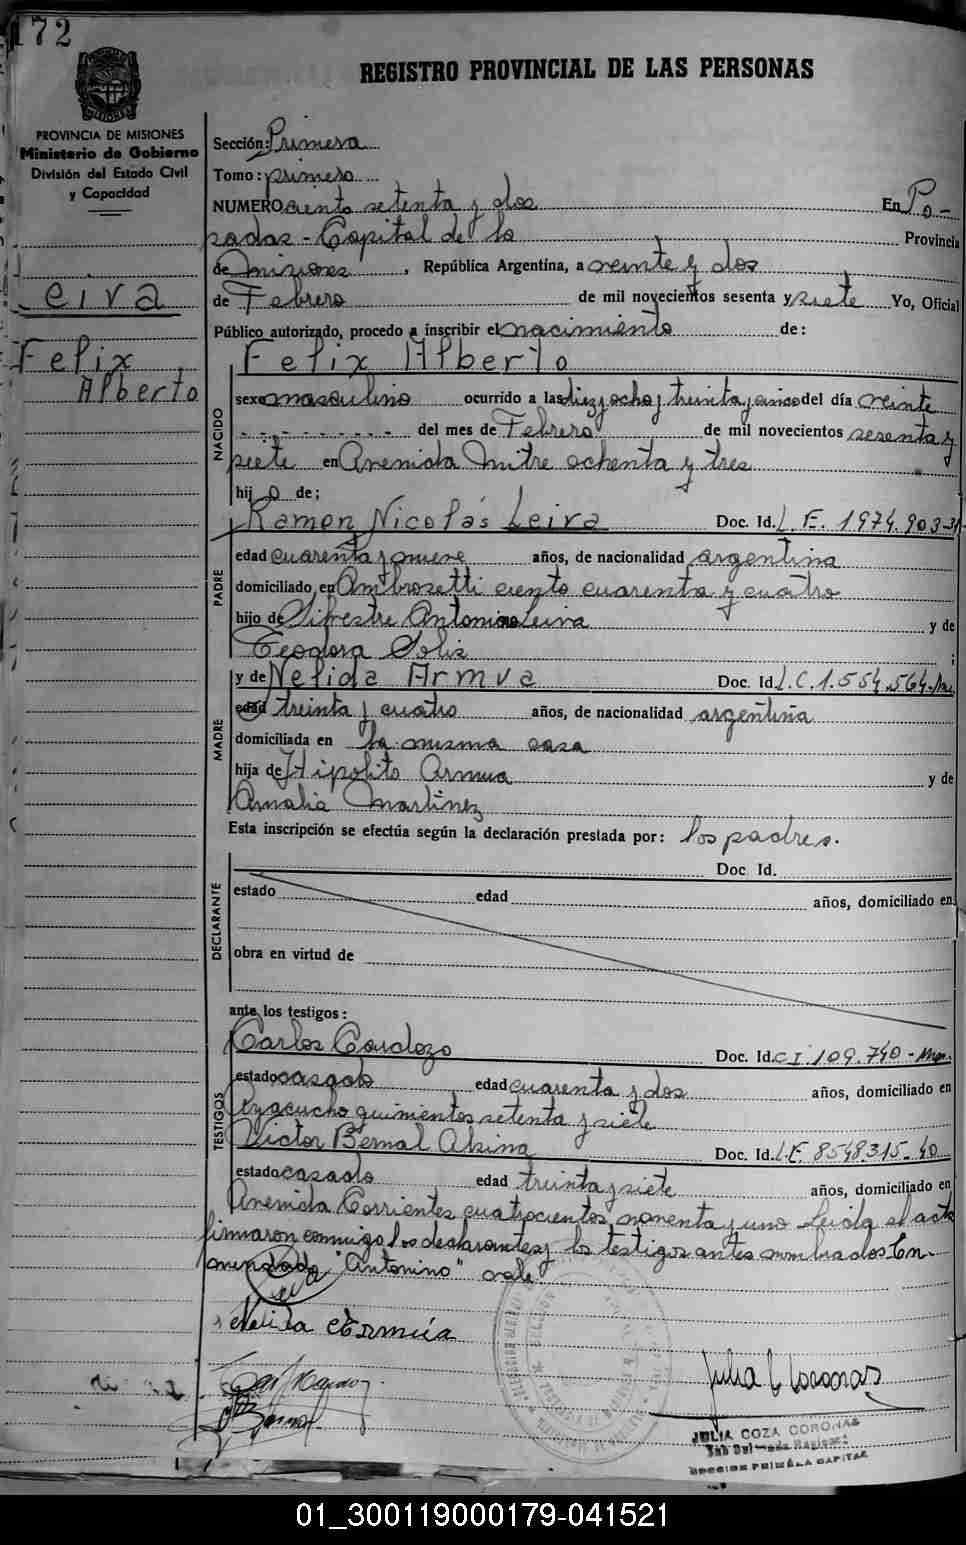 172
REGISTRO PROVINCIAL DE LAS PERSONAS
PROVINCIA DE MISIONES
Ministerio de Gobierno
División del Estado Civil
y Capacidad
Leiva
Felix
Alberto
Sección: Primera
Tomo: primero
NUMERO ciento setenta y dos En Po-
sadas - Capital de la Provincia
de Misiones, República Argentina, a veinte y dos
de Febrero de mil novecientos sesenta y siete Yo, Oficial
Público autorizado, procedo a inscribir el nacimiento de:
Felix Alberto
NACIDO
sexo masculino ocurrido a las diez y ocho y treinta y cinco del día veinte
del mes de Febrero de mil novecientos sesenta y
siete en Avenida Mitre ochenta y tres
hijo de;
Ramon Nicolás Leiva Doc. Id. L.E. 1974.903-
PADRE
edad cuarenta y nueve años, de nacionalidad argentina
domiciliado en Ambrosetti ciento cuarenta y cuatro
hijo de Silvestre Antonino Leiva y de
Teodora Solis ;
y de Nelida Armua Doc. Id. L.C.1.554.564-
MADRE
edad treinta y cuatro años, de nacionalidad argentina
domiciliada en la misma casa
hija de Hipolito Armua y de
Amalia Martinez
Esta inscripción se efectúa según la declaración prestada por: los padres.
DECLARANTE
Doc. Id.
estado edad años, domiciliado en
obra en virtud de
ante los testigos:
TESTIGOS
Carlos Cardozo Doc. Id. C I 109.740-
estado casado edad cuarenta y dos años, domiciliado en
Ayacucho quinientos setenta y siete
Victor Bernal Alsina Doc. Id. L.E. 8548.315-40
estado casado edad treinta y siete años, domiciliado en
Avenida Corrientes cuatrocientos noventa y uno. Leida el acta
firmaron conmigo los declarantes y los testigos antes nombrados. En-
mendado "Antonino" vale
Nelida Armúa
Julia C Coronas
JULIA COZA CORONAS
SECCION PRIMERA CAPITAL
01_300119000179-041521